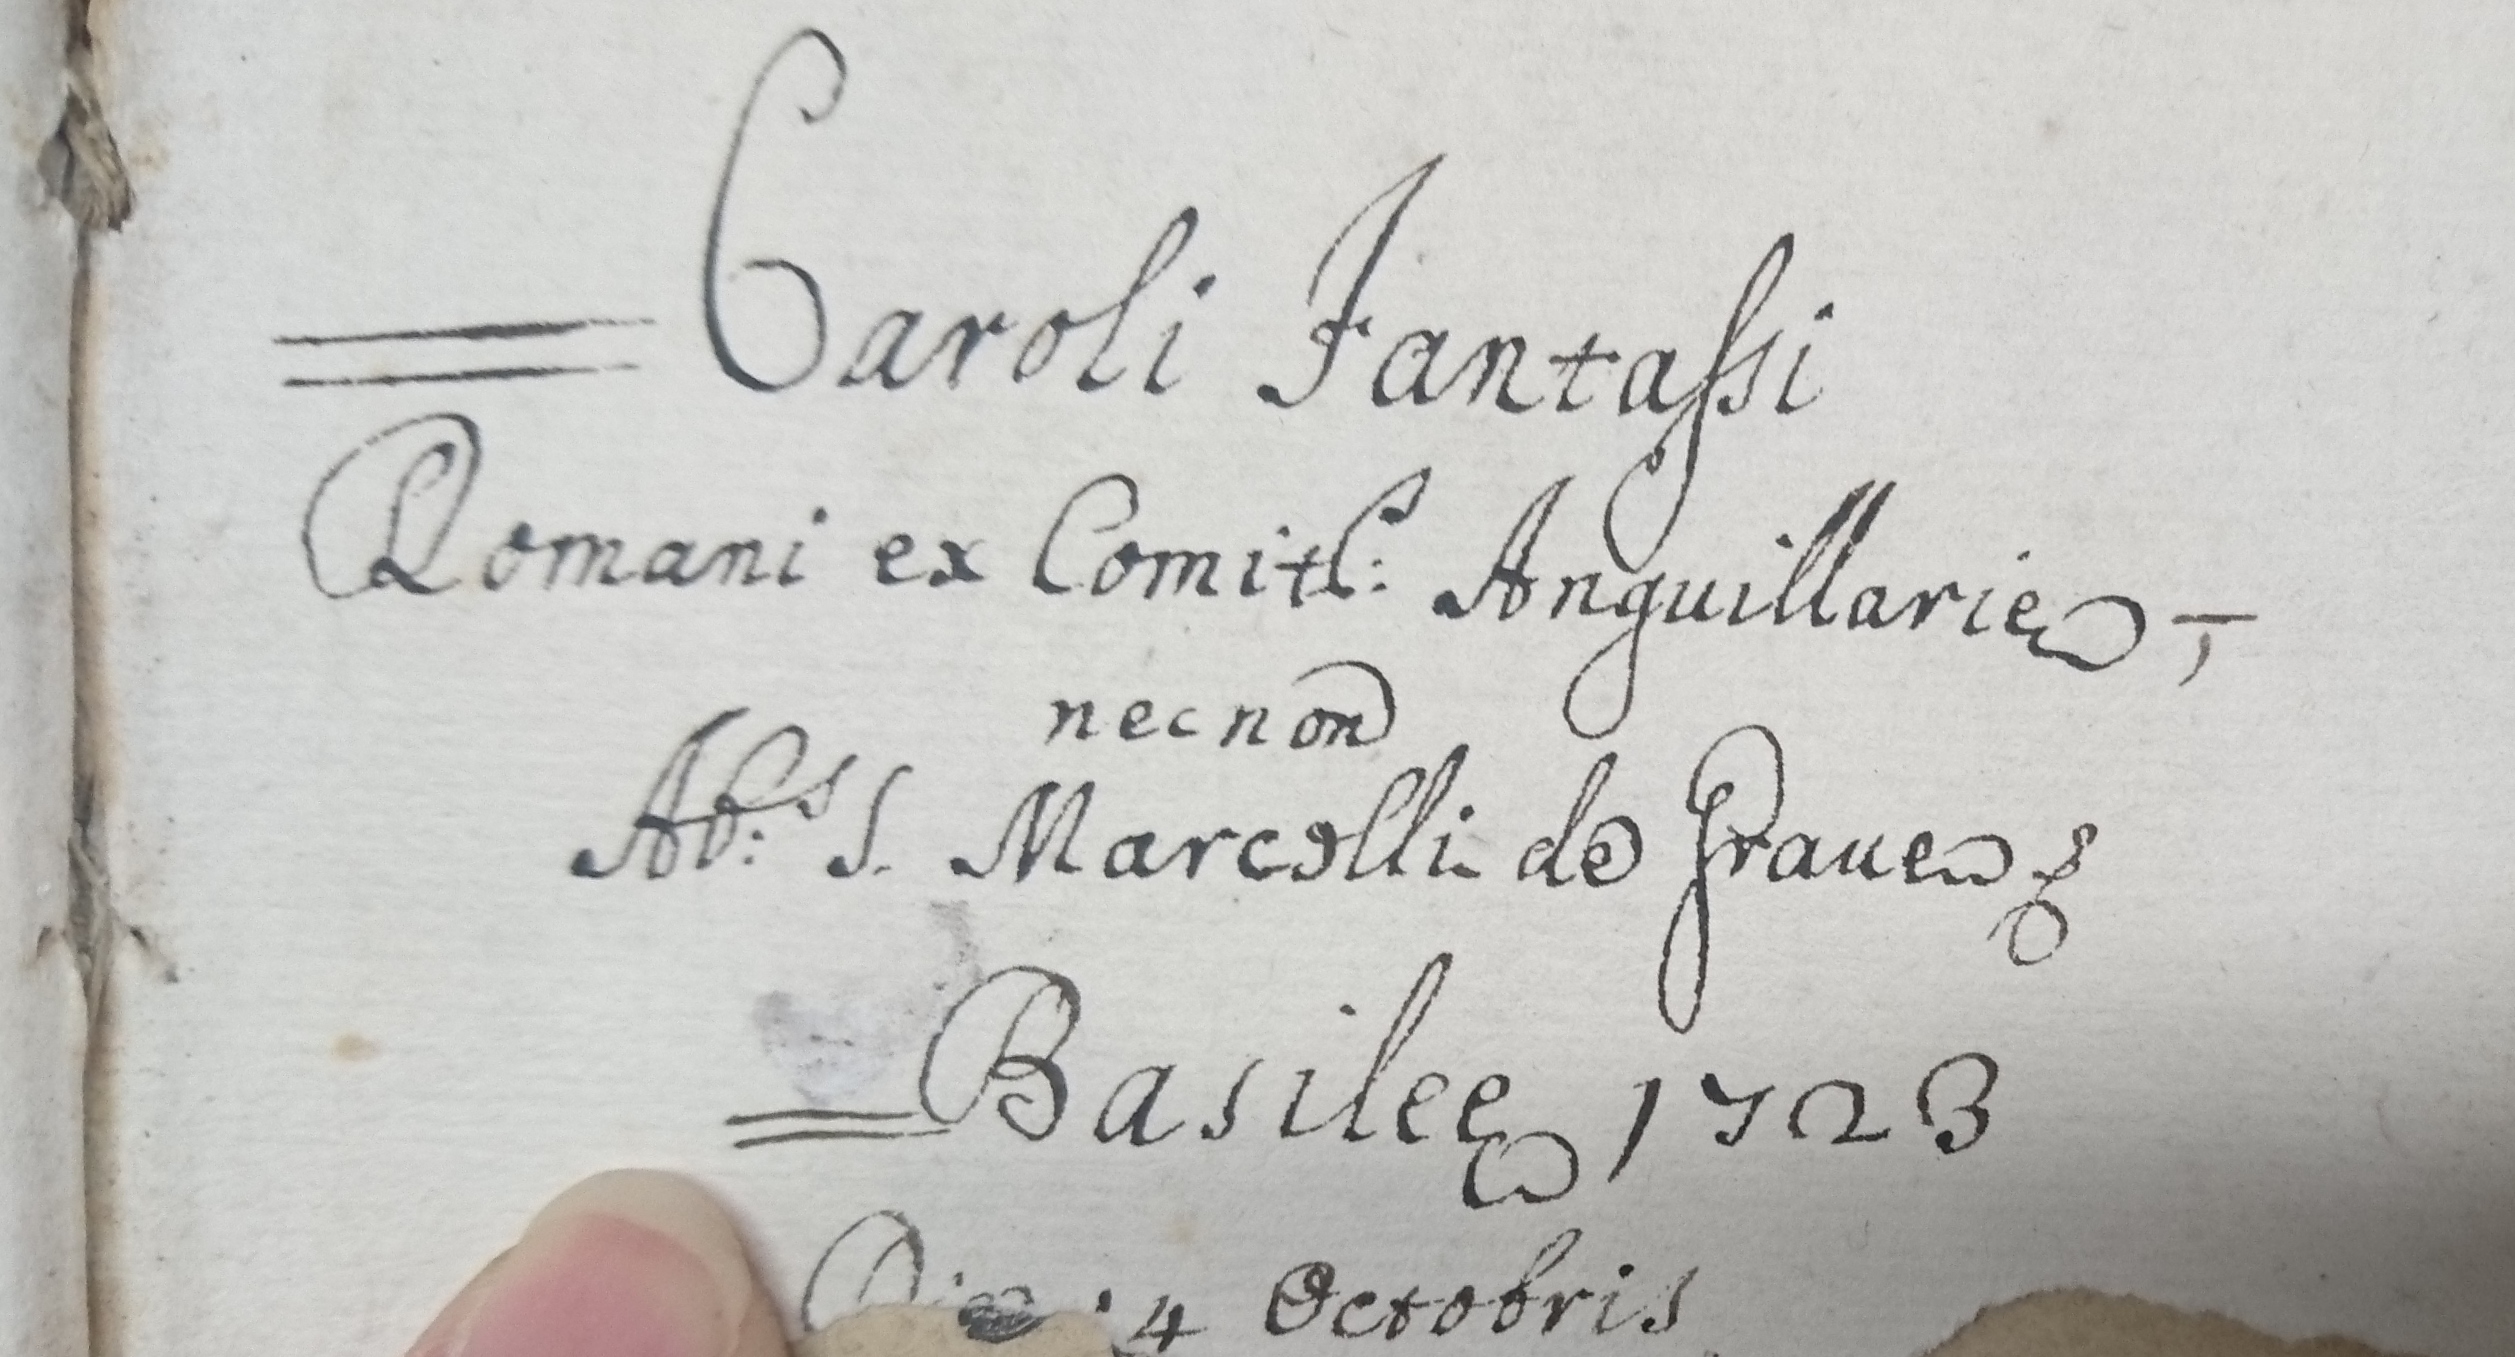 Caroli Fantassi
Romani ex Comitˢ: Anguillarie,
necnon
Abˢ: S. Marcelli de Graue &
Basilee 1723
Die 4 Octobris